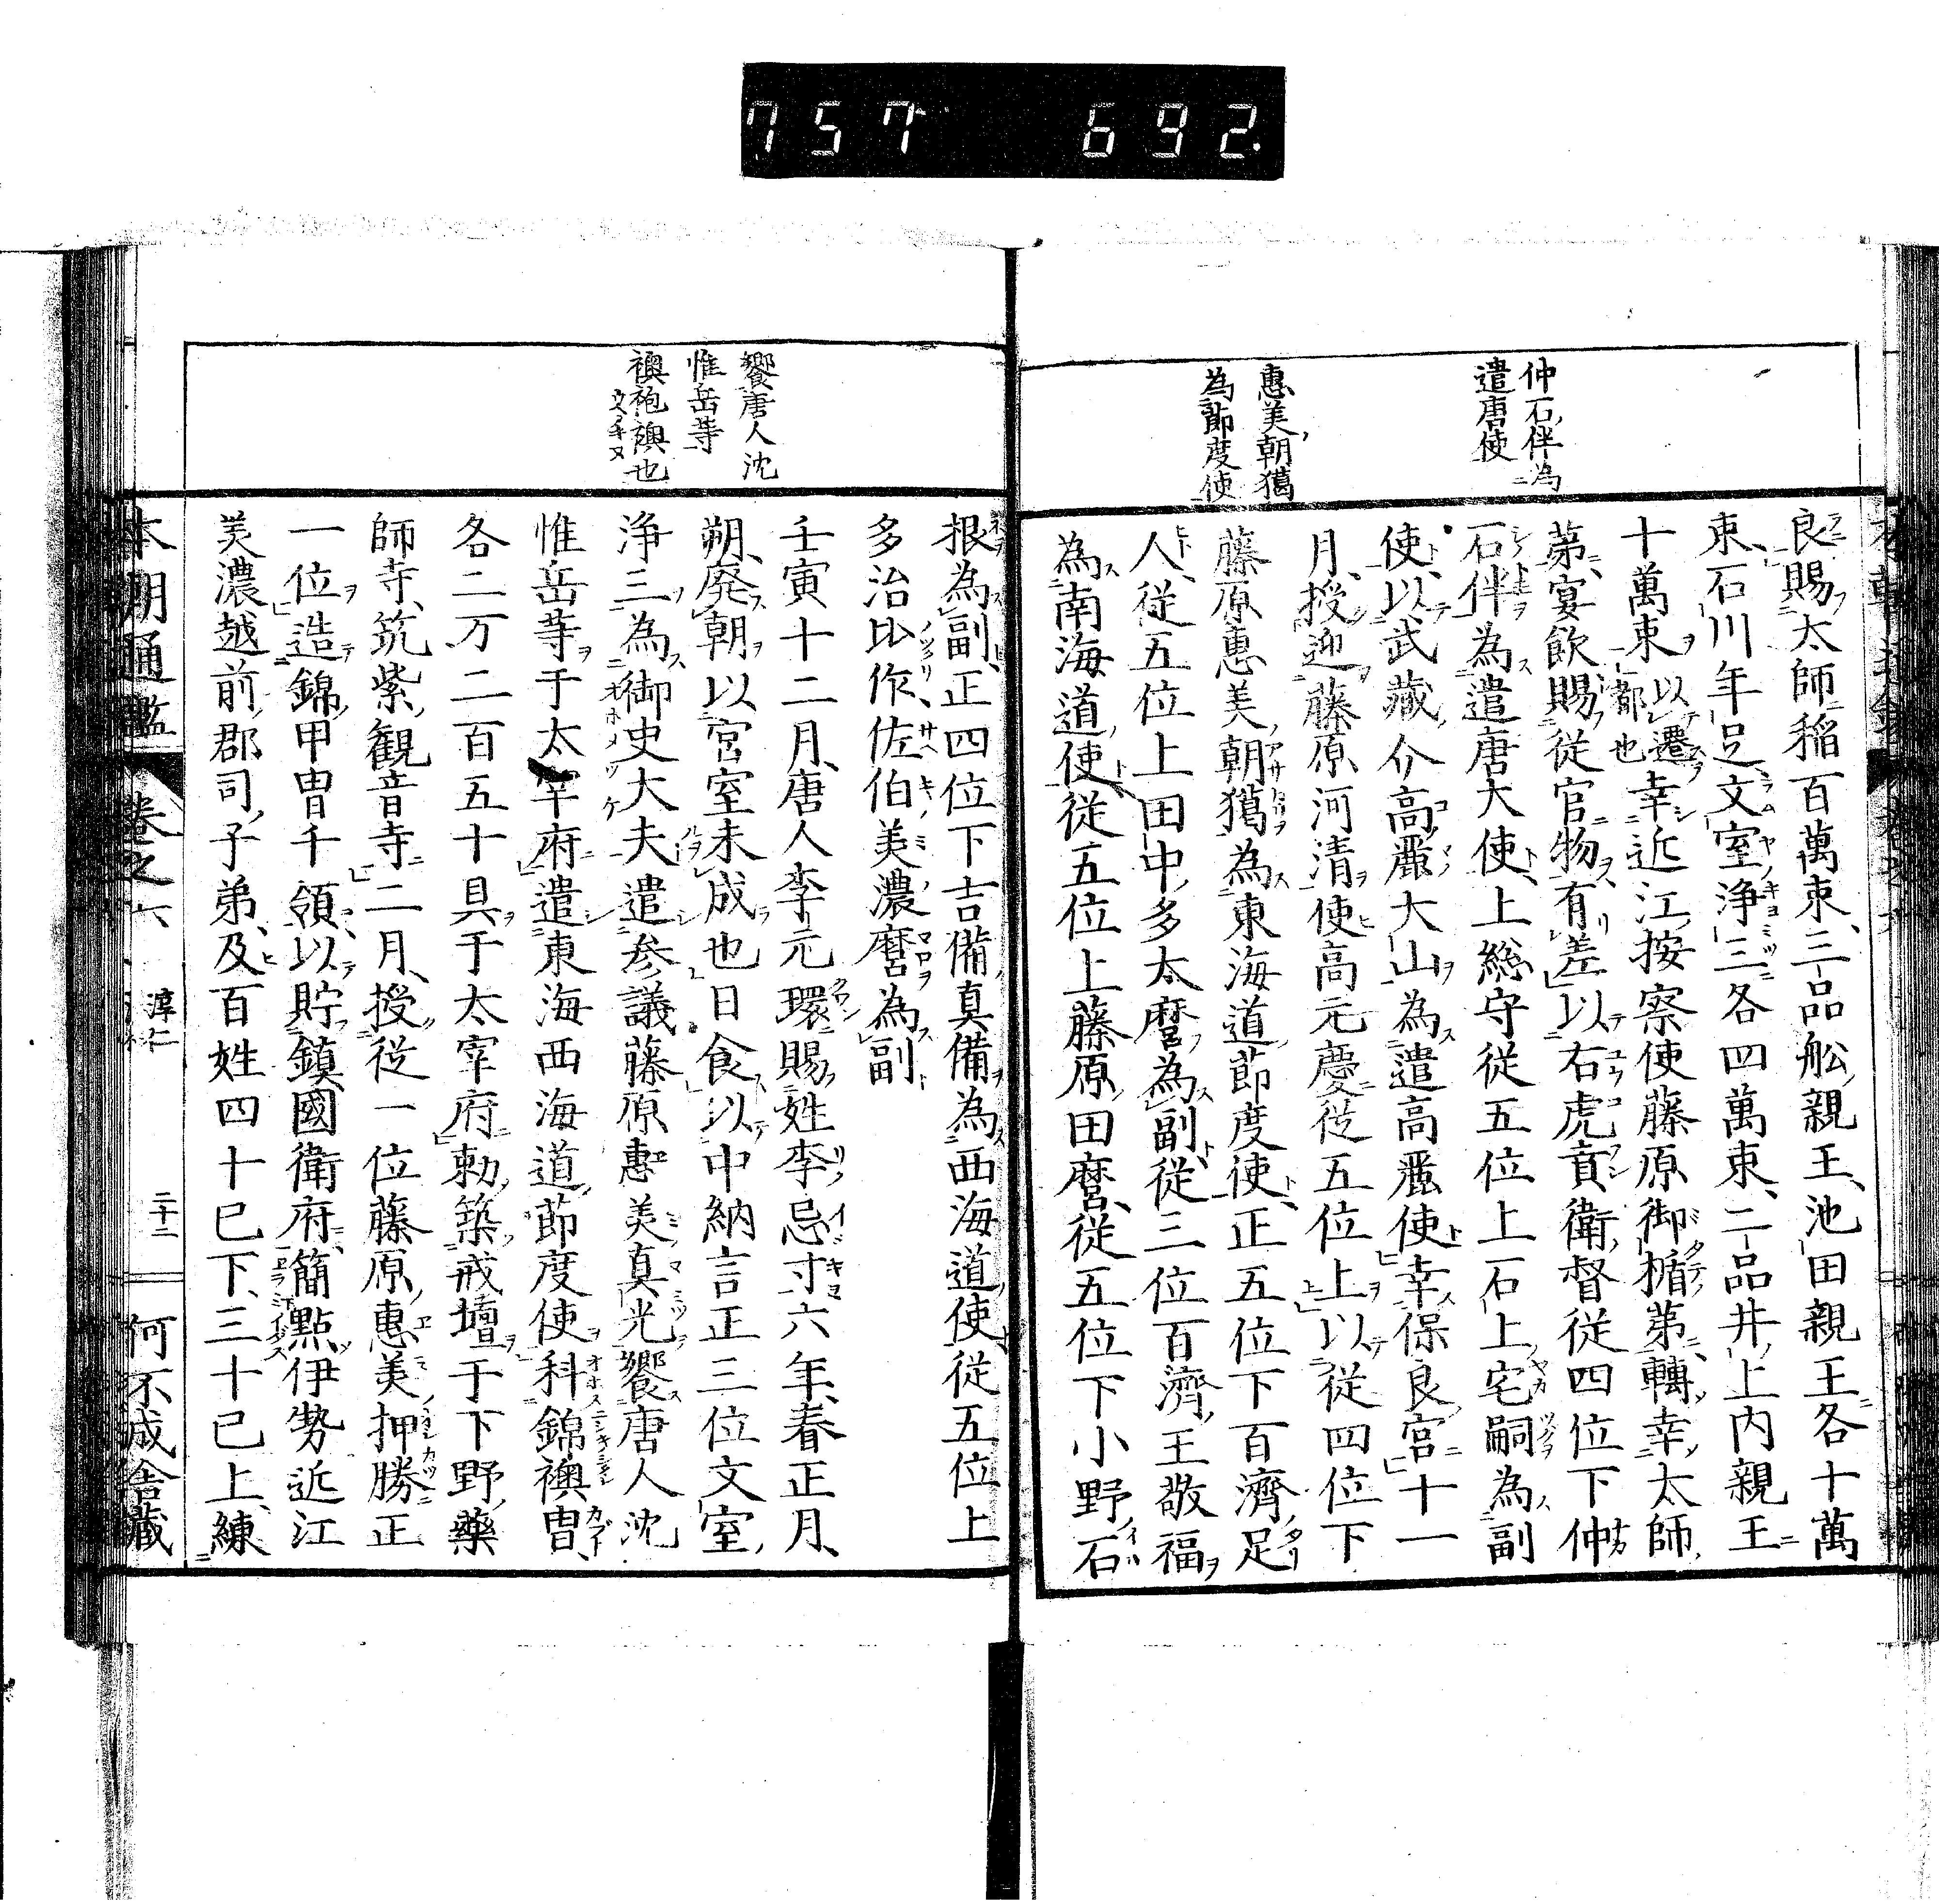 757 692
仲石伴為
遣唐使
惠美朝獦
為節度使
良賜太師稲百萬束三品舩親王池田親王各十萬
束石川年足文室浄三各四萬束二品井上内親王
十萬束以遷都也幸近江按察使藤原御楯第轉幸太師
第宴飲賜從官物有差以右虎賁衛督從四位下仲
石伴為遣唐大使上総守從五位上石上宅嗣為副
使以武藏介高麗大山為遣高麗使幸保良宮十一
月授迎藤原河清使高元慶從五位上以從四位下
藤原惠美朝獦為東海道節度使正五位下百濟足
人從五位上田中多太麿為副從三位百濟王敬福
為南海道使從五位上藤原田麿從五位下小野石
饗唐人沈
惟岳等
襖袍襖也
根為副正四位下吉備真備為西海道使從五位上
多治比作佐伯美濃麿為副
壬寅十二月唐人李元環賜姓李忌寸六年春正月
朔廃朝以宮室未成也日食以中納言正三位文室
浄三為御史大夫遣参議藤原惠美真光饗唐人沈
惟岳等于太宰府遣東海西海道節度使科錦襖冑
各二万二百五十具于太宰府勅築戒壇于下野藥
師寺筑紫觀音寺二月授從一位藤原惠美押勝正
一位造錦甲冑千領以貯鎮國衛府簡點伊勢近江
美濃越前郡司子弟及百姓四十已下三十已上練
本朝通鑑 卷之六 淳仁 二十二 何不成舎藏